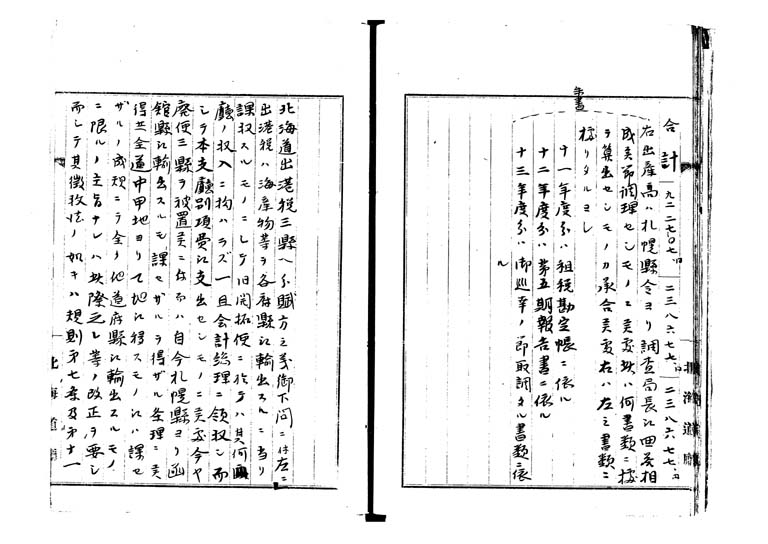 合計 九二二七〇七 二三八六七七 二三八六七七
右出産高ハ札幌縣令ヨリ調査局長江回答相
成其節調理セシモノニ候処此ハ何書類ニ據
ラ算出セシモノカ承合候処右ハ左之書類ニ
據リタルヨシ
朱書
十一年度分ハ租税勘定帳ニ依ル
十二年度分ハ第五期報告書ニ依ル
十三年度分ハ御巡幸ノ節取調タル書類ニ依
ル
北海道廳
北海道出港税三縣ヘ分賦方之義御下問ニ付左ニ
出港税ハ海産物等ヲ各府縣江輸出スルニ当リ
課収スルモノニシテ旧開拓使ニ於テハ其何
廳ノ収入ニ拘ハラズ一旦会計総理ニ領収シ而
シテ本支廳別項費江支出セシモノニ候処今ヤ
廃使三縣ヲ被置候ニ付而ハ自今札幌縣ヨリ函
館縣江輸出スルモ課セザルヲ得ザル条理ニ候
得共全道中甲地ヨリ乙地江移スモノハ課セ
ザルノ成規ニテ全ク他道府縣江輸出スルモノ
ニ限ルノ主旨ナレハ此際之レ等ノ改正ヲ要シ
而シテ其徴収法ノ如キハ規則第七条及第十一
北海道廳